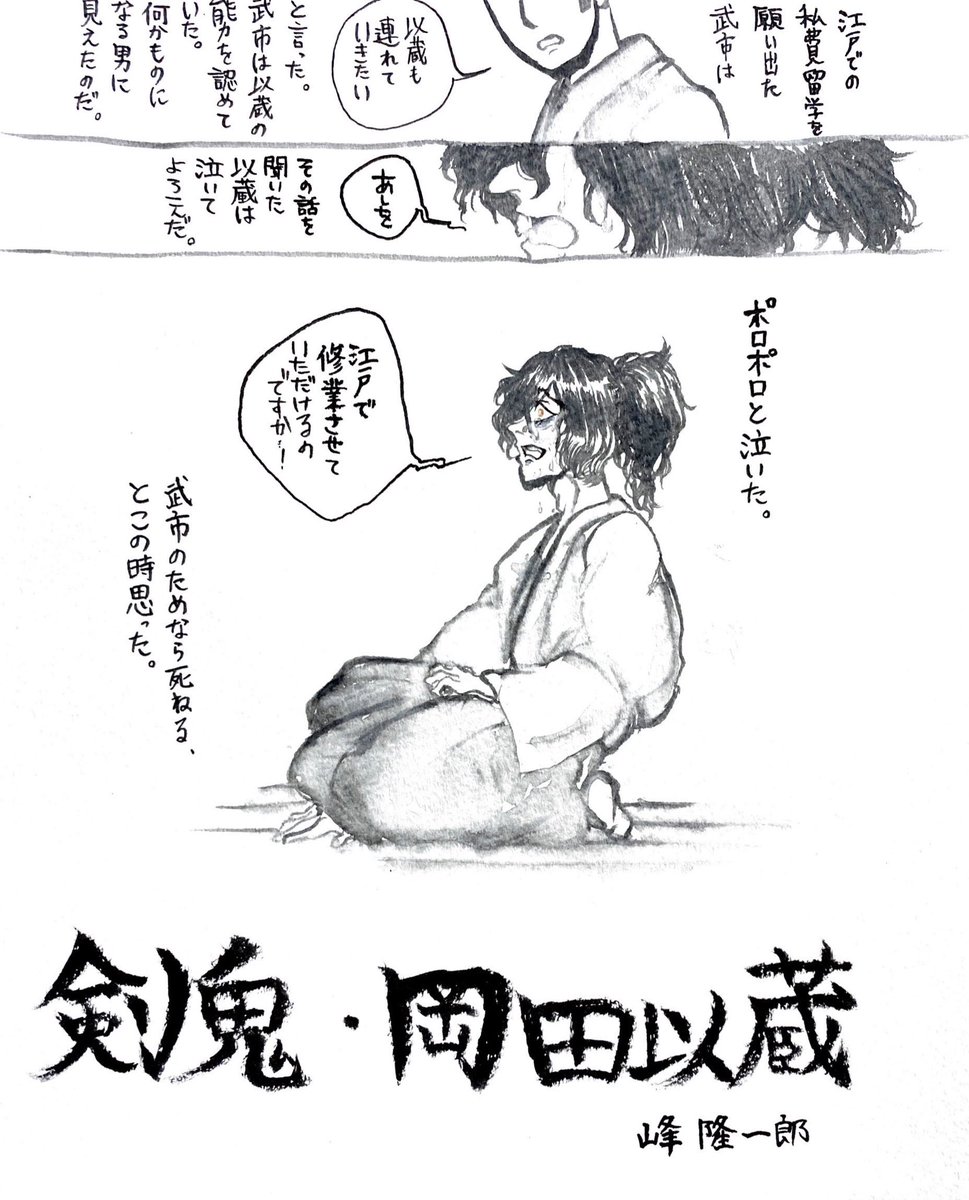 江戸での
私費留学を
願い出た
武市は
以蔵も
連れて
いきたい
と言った。
武市は以蔵の
能力を認めて
いた。
何かものに
なる男に
見えたのだ。
あしを
その話を
聞いた
以蔵は
泣いて
よろこんだ。
ポロポロと泣いた。
江戸で
修業させて
いただけるの
ですか…!
武市のためなら死ねる、
とこの時思った。
剣鬼・岡田以蔵
峰 隆一郎